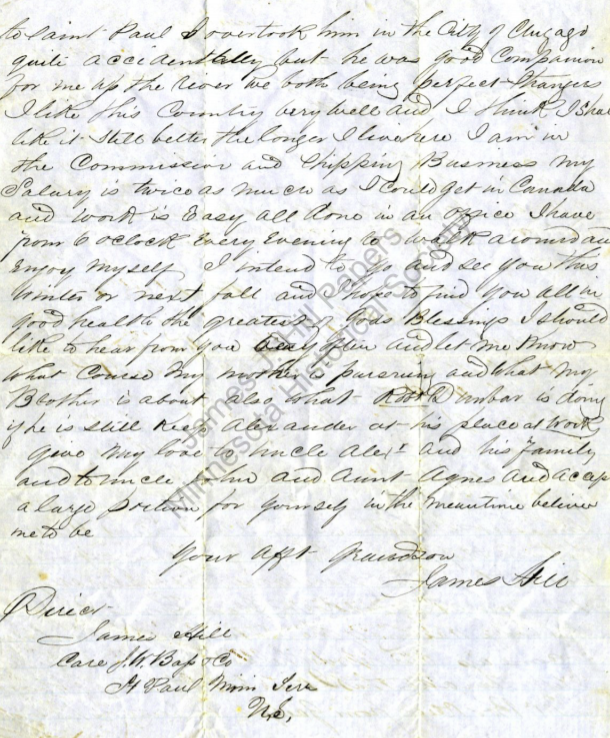 to Saint Paul I overtook him in the City of Chicago
quite accidentally but he was good Companion
for me up the river we both being perfect Strangers
I like this Country very well and I think I Shal
like it Still better the longer I live here I am in
the Commission and Shipping Business my
Salary is twice as much as I could get in Canada
and work is Easy all done in an office I have
from 6 oclock Every Evening to walk around and
Enjoy myself I intend to go and see you this
Winter or next fall and hope to find you all in
good health the greatest of Gods Blessings I should
like to hear from you very often and let me know
what course my mother is pursuing and what my
Brother is about also what Robt Dunbar is doing
if he is still Keep Alexander at his place at work
give my love to Uncle Alexr and his family
and to Uncle John and Aunt Agnes and accep
a large portion for yourself in the meantime believe
me to be
Your afft Grandson
James Hill
Direct
James Hill
Care J.W. Bass & Co
St Paul Minn Terr
U.S.
James J. Hill Papers
Minnesota Historical Society